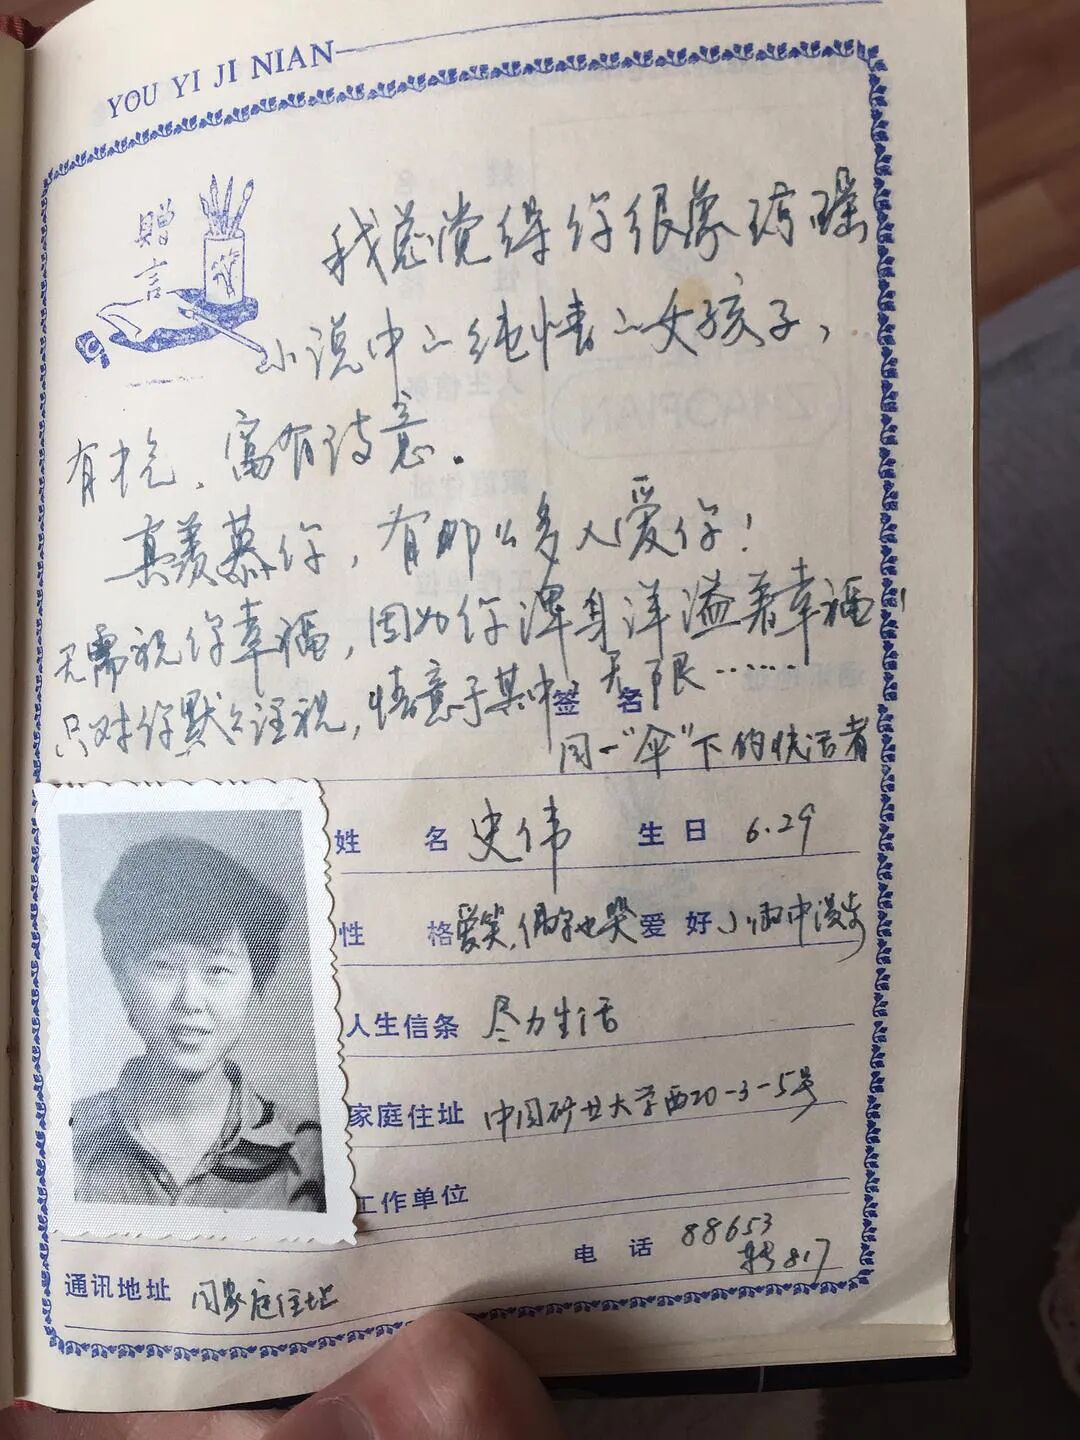 YOU YI JI NIAN
赠言
我总觉得你很像琼瑶
小说中的纯情的女孩子，
有才气、富有诗意。
真羡慕你，有那么多人爱你！
无需祝你幸福，因为你浑身洋溢着幸福！
只对你默默注视，惬意于其中，无限……
签 名
同一“伞”下的快活者
姓 名 史伟 生 日 6.29
性 格 爱笑，偶尔也哭 爱 好 小雨中漫步
人生信条 尽力生活
家庭住址 中国矿业大学西20-3-5号
工作单位
电 话 88653
转817
通讯地址 同家庭住址